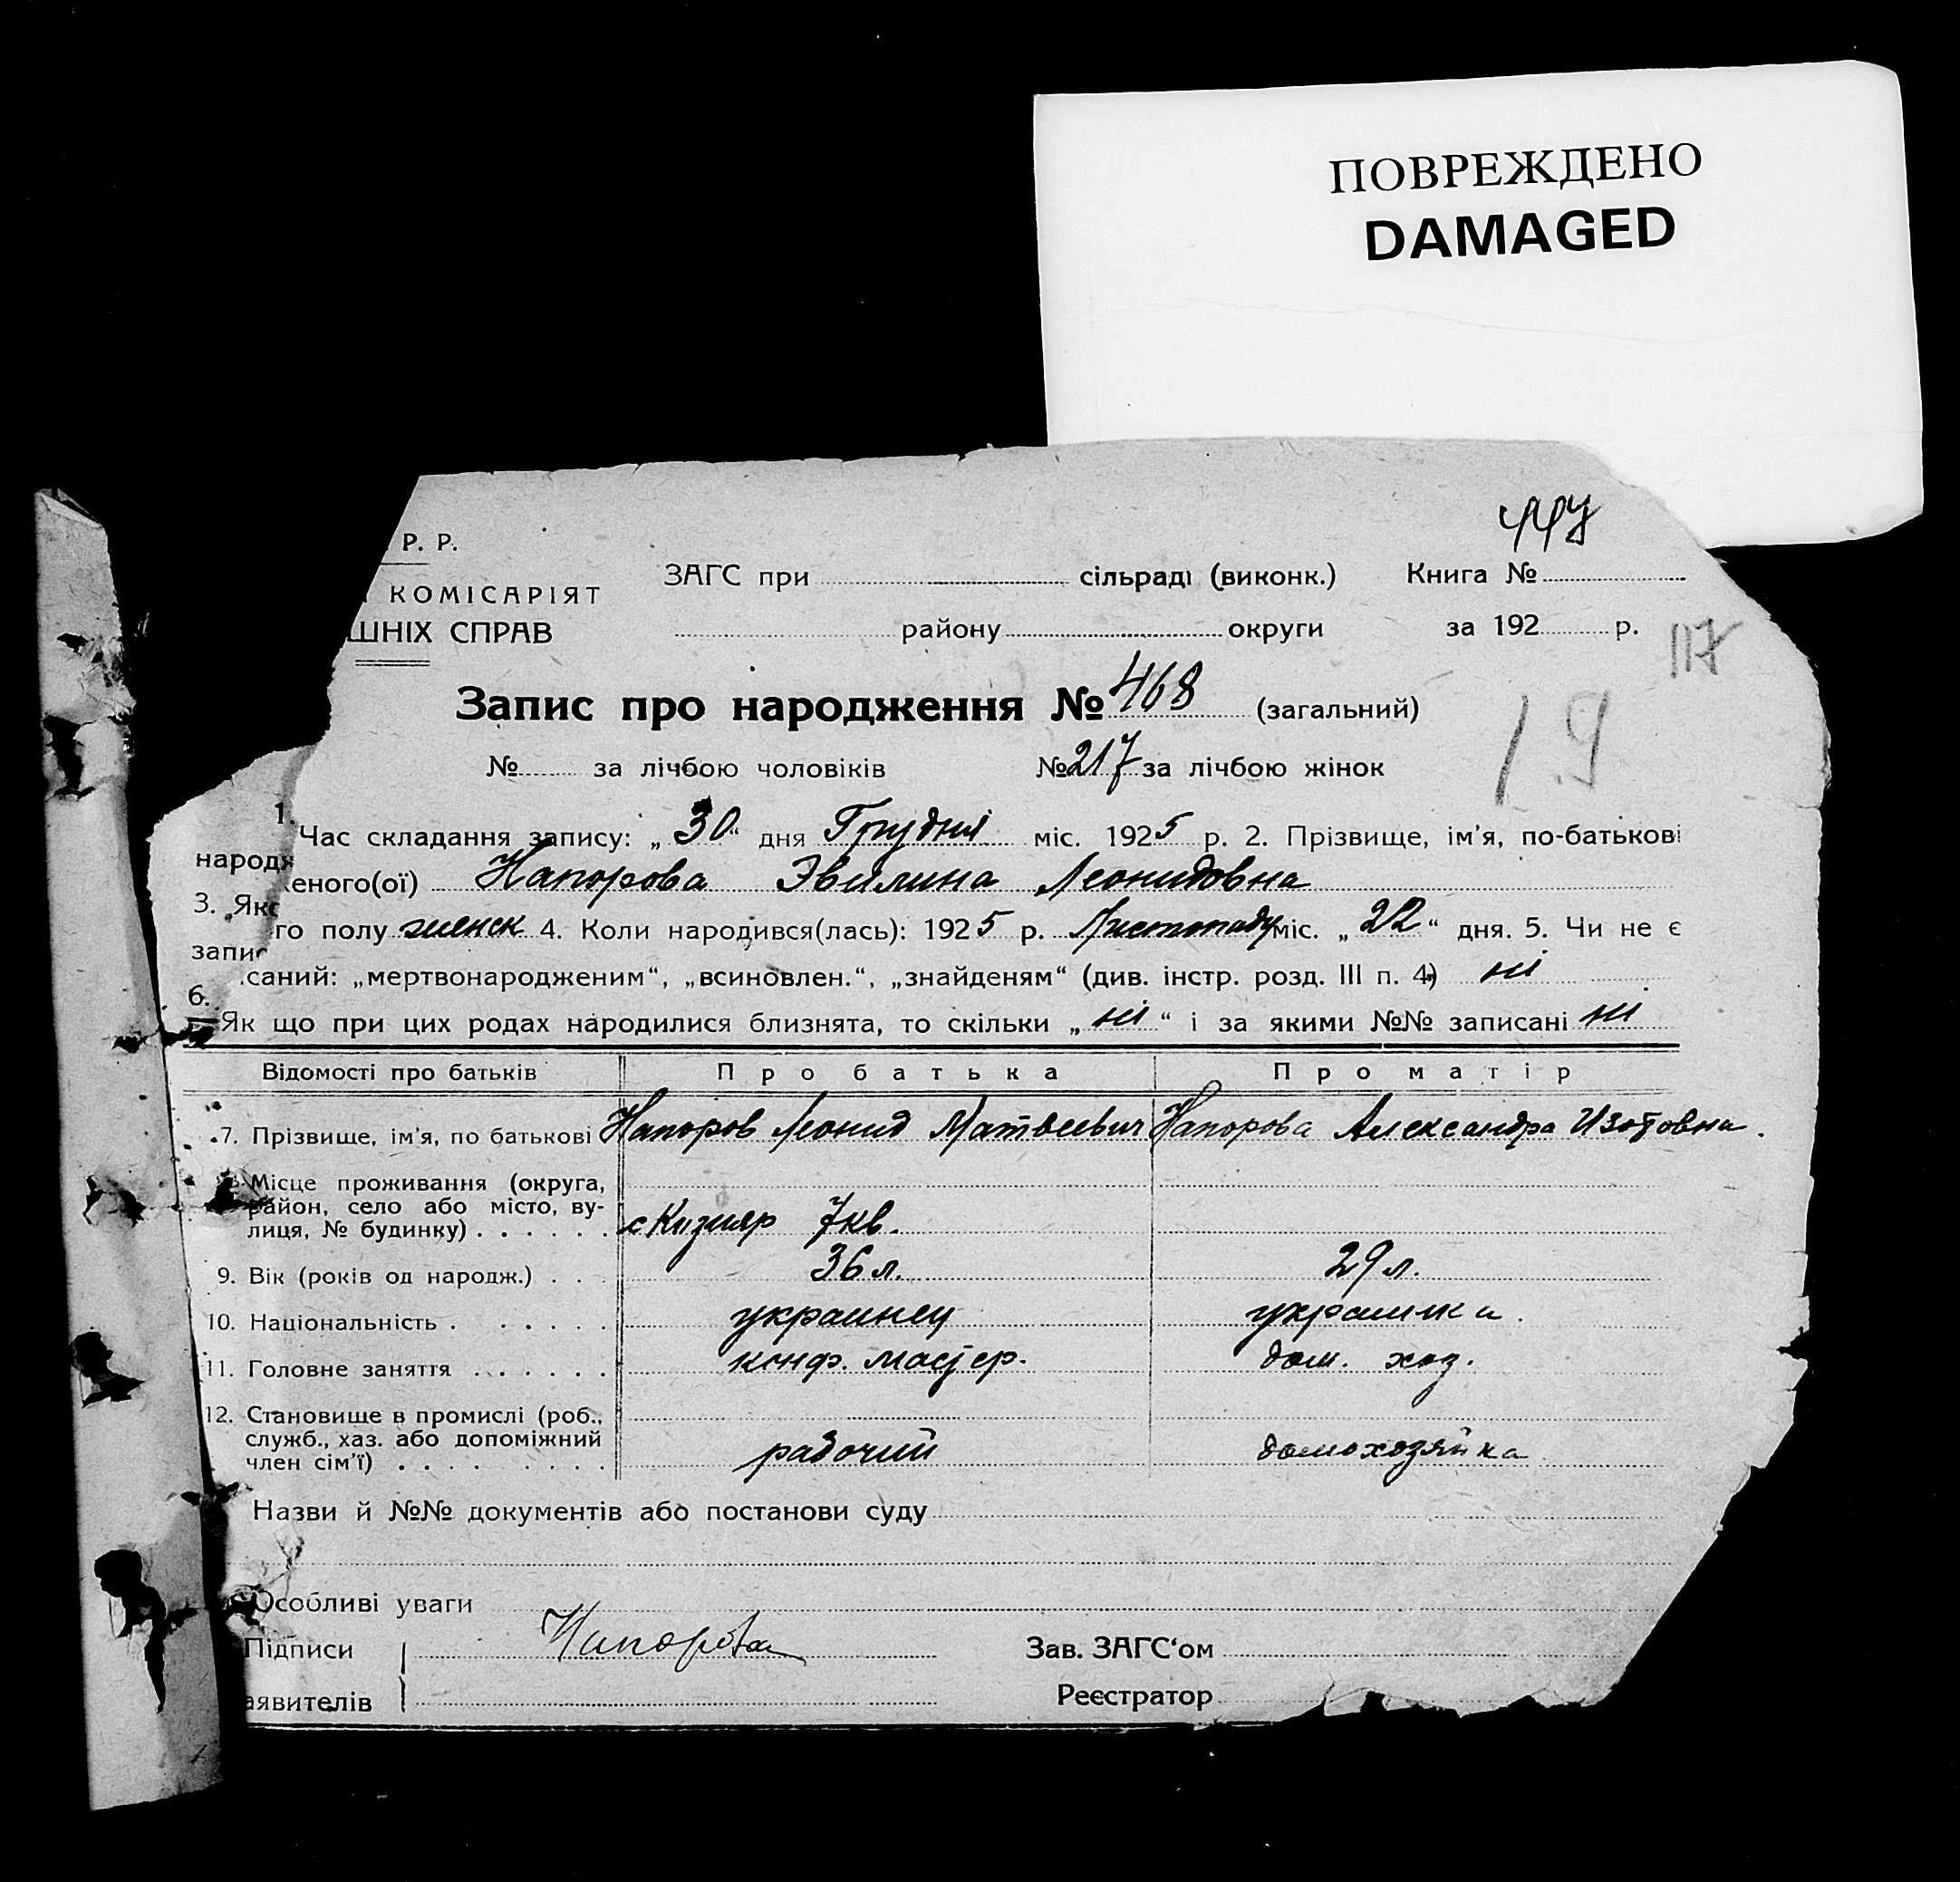 ПОВРЕЖДЕНО
DAMAGED
Р. Р.
КОМІСАРІЯТ
ШНІХ СПРАВ
ЗАГС при сільраді (виконк.) Книга №
району округи за 192 р.
117
Запис про народження № 468 (загальний)
19
№ за лічбою чоловіків № 217 за лічбою жінок
1. Час складання запису: „30“ дня Грудня міс. 1925 р. 2. Прізвище, ім'я, по-батькові
народженого(ої) Напорова Эвилина Леонидовна
3. Якого полу женск 4. Коли народився(лась): 1925 р. Листопаду міс. „22“ дня. 5. Чи не є
записаний: „мертвонародженим“, „всиновлен.“, „знайденям“ (див. інстр. розд. III п. 4) ні
6. Як що при цих родах народилися близнята, то скільки „ні“ і за якими №№ записані ні
Відомості про батьків Про батька Про матір
7. Прізвище, ім'я, по батькові Напоров Леонид Матвеевич Напорова Александра Изотовна.
8. Місце проживання (округа,
район, село або місто, ву-
лиця, № будинку) с Кизияр 7 кв.
9. Вік (років од народж.) 36 л. 29 л.
10. Національність украинец украинка.
11. Головне заняття конф. мастер. дом. хоз.
12. Становище в промислі (роб.,
служб., хаз. або допоміжний
член сім'ї) рабочий домохозяйка
Назви й №№ документів або постанови суду
Особливі уваги
Підписи Напорова Зав. ЗАГС'ом
аявителів Реєстратор